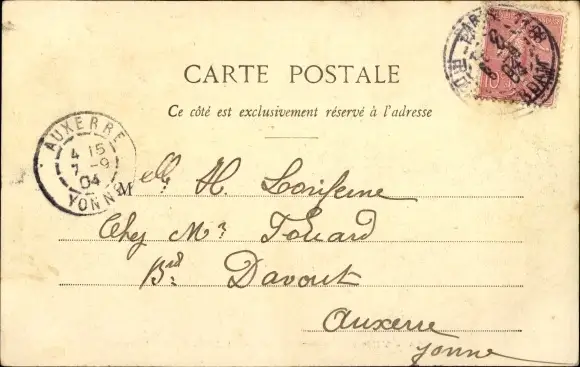 CARTE POSTALE
Ce côté est exclusivement réservé à l'adresse
AUXERRE
4 15
7 -9
04
YONNE
Melle H.
Chez Mr Touard
Bd Davout
Auxerre
Yonne